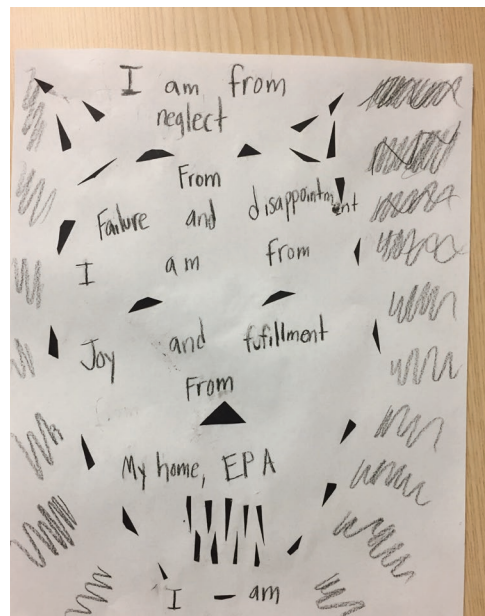 I am from
neglect
From
Failure and disappointment
I am from
Joy and fufillment
From
My home, EPA
I — am